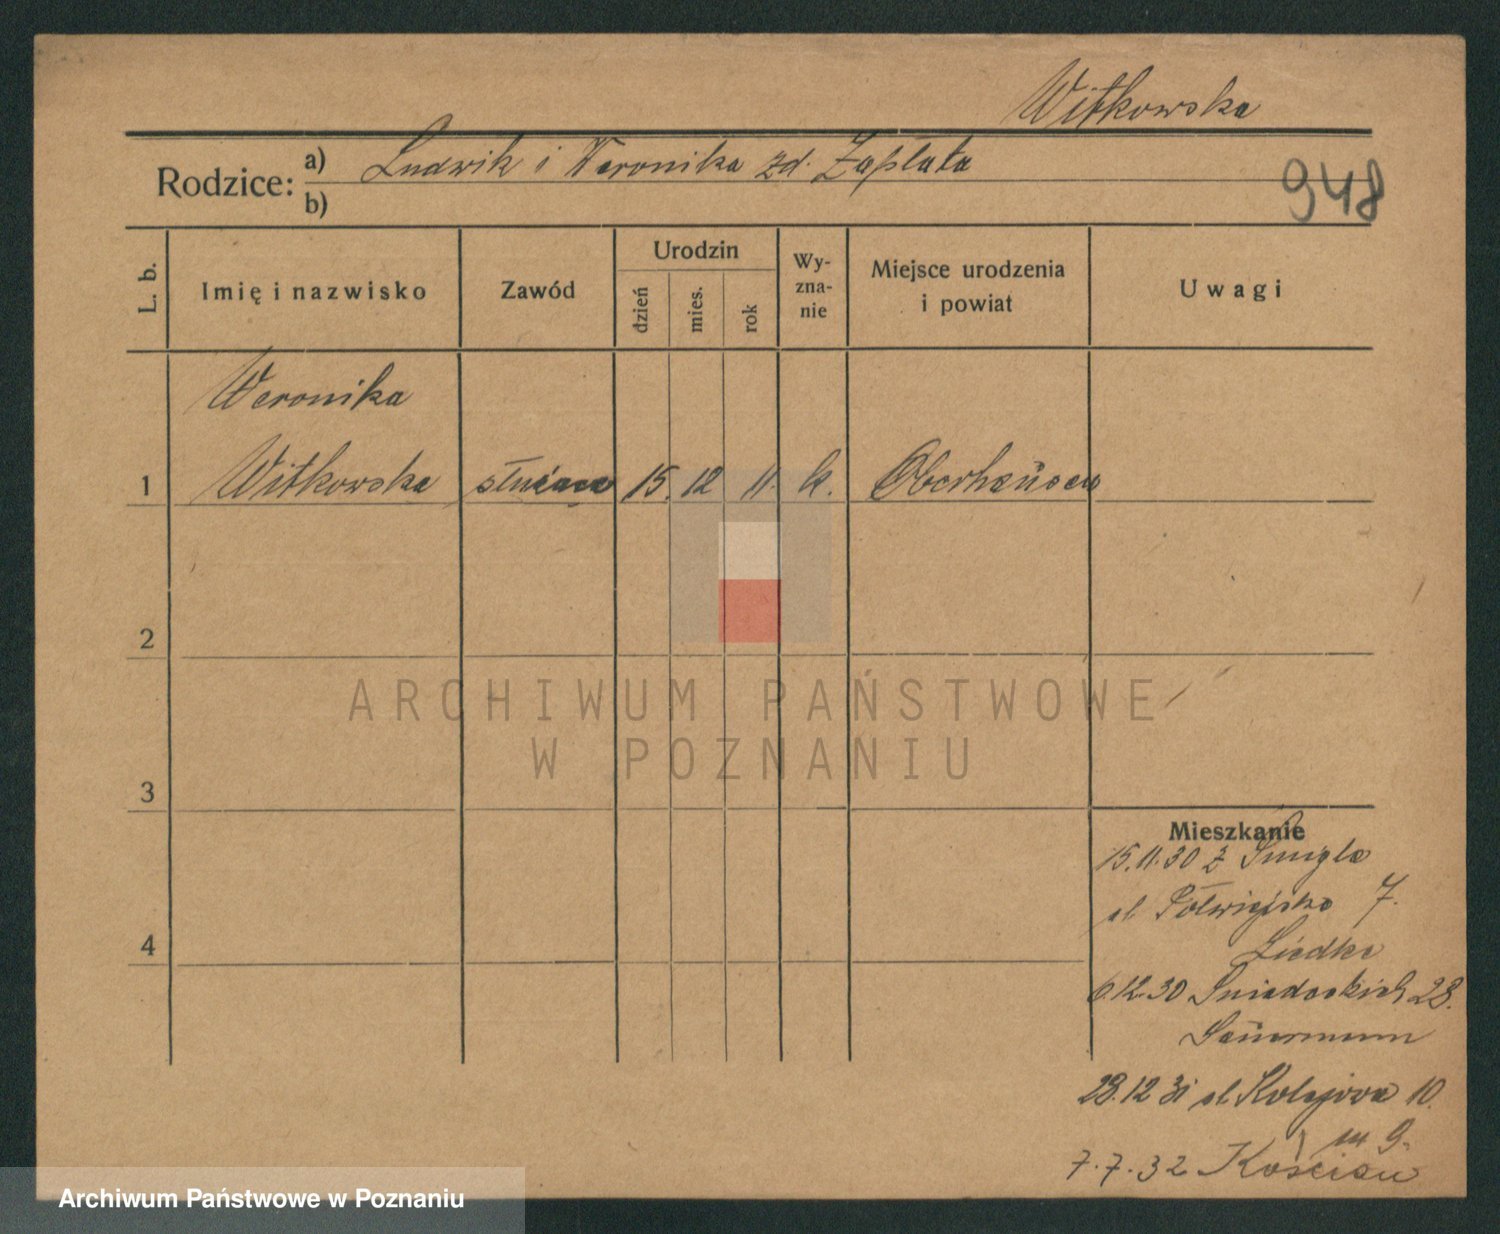 Witkowska
Rodzice: a) Ludwik i Weronika zd. Zapłata
b)
948
L. b.
Imię i nazwisko
Zawód
Urodzin
dzień
mies.
rok
Wy-
zna-
nie
Miejsce urodzenia
i powiat
Uwagi
Weronika
1 Witkowska służąca 15. 12 11. k. Oberhausen
2
3
4
ARCHIWUM PAŃSTWOWE
W POZNANIU
Mieszkanie
15.11.30 z Śmigla
ul. Półwiejska 7.
Liedke
6.12.30 Śniadeckich 28.
28.12 31 ul. Kolejowa 10.
m 9.
7.7.32 Kościan
Archiwum Państwowe w Poznaniu